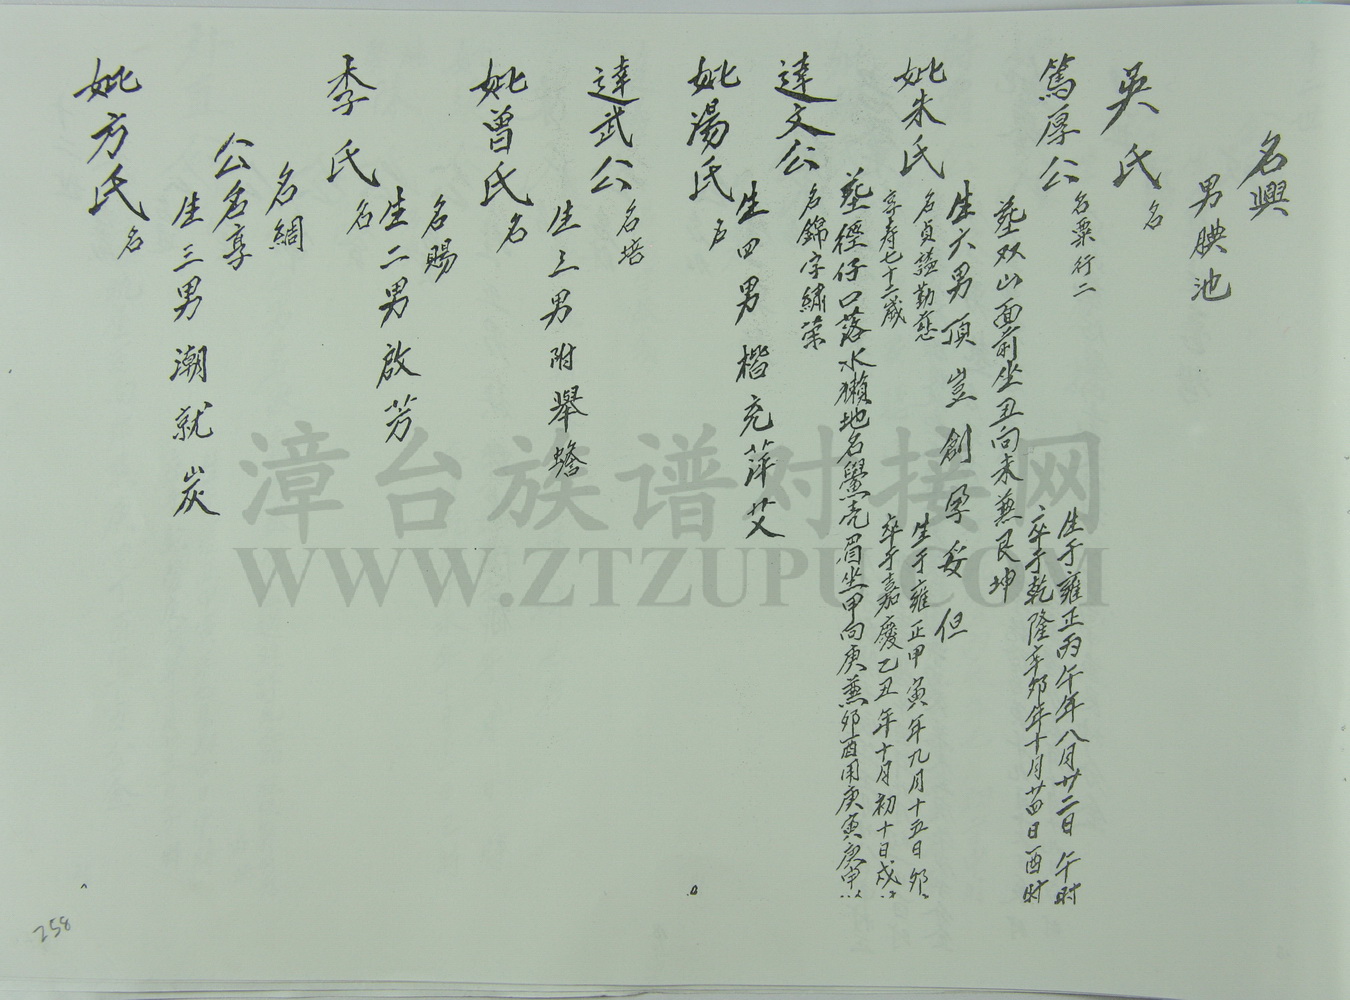 名興
男腆池
吳氏名
篤厚公名粟行二
生于雍正丙午年八月廿二日午時
卒于乾隆辛卯年十月廿四日酉時
葬双山面前坐丑向未兼艮坤
生六男頂豈創孕妥但
妣朱氏名貞謚勤慈
享寿七十二歲
生于雍正甲寅年九月十五日卯
卒于嘉慶乙丑年十月初十日戌
塟徑仔口落水獺地名鱟壳眉坐甲向庚兼卯酉用庚寅庚申
達文公名錦字繡策
生四男楷充萍艾
妣湯氏名
達武公名培
生三男附舉蟾
妣曾氏名
名賜
生二男啟芳
李氏名
名綢
公名享
生三男潮就炭
妣方氏名
258
漳台族谱对接网
WWW.ZTZUPU.COM